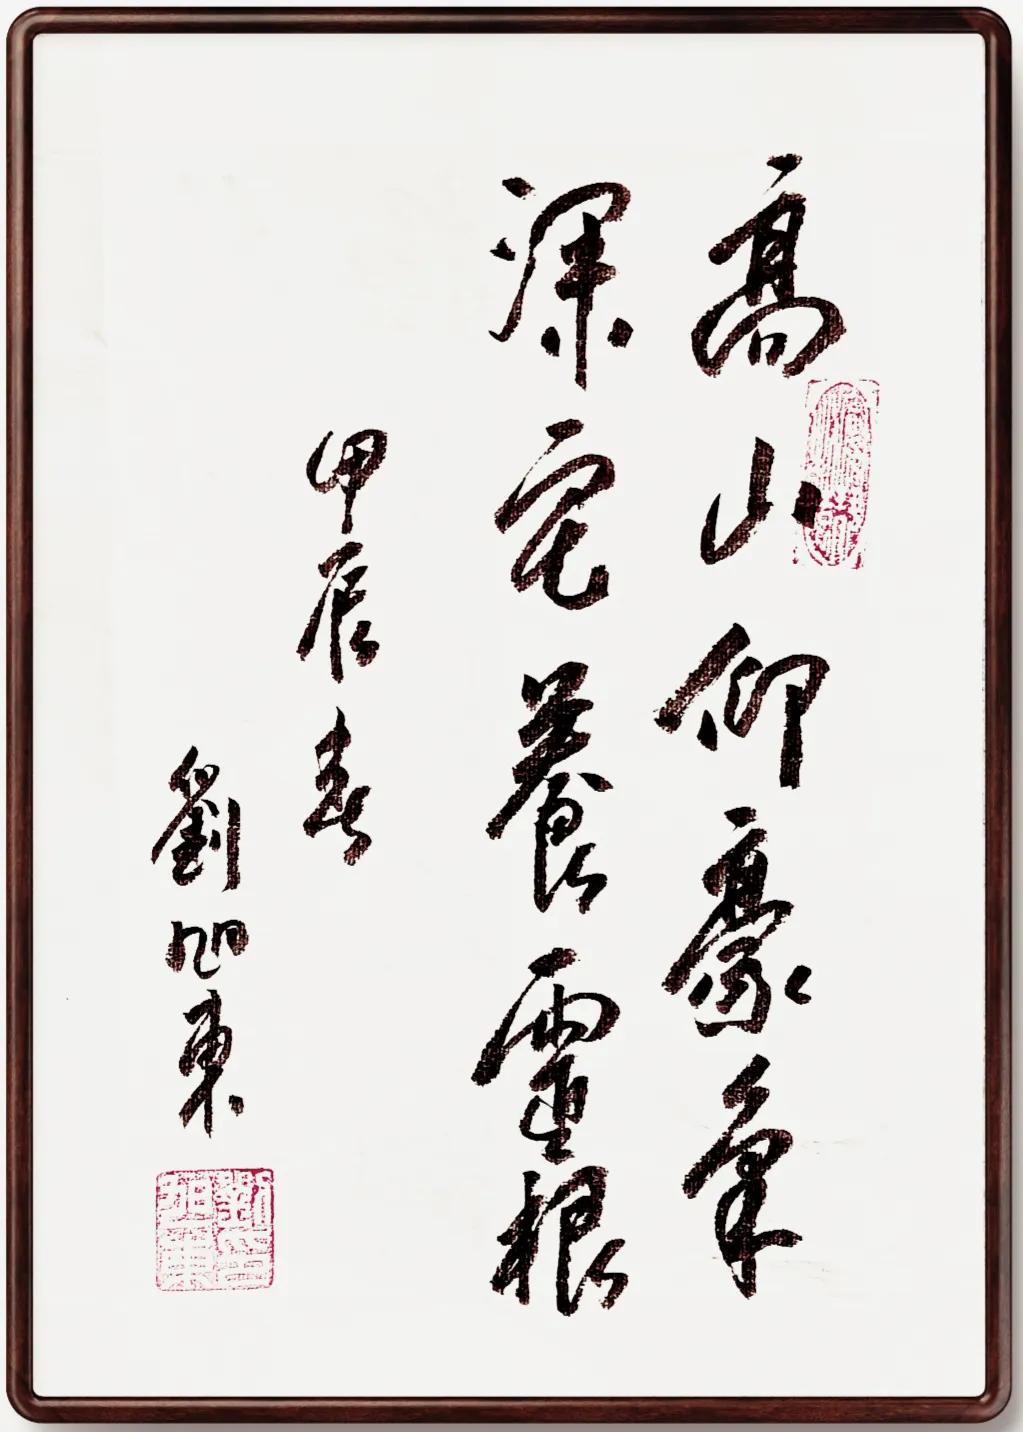 高山仰豪氣
深宅養靈根
甲辰春
劉旭東
劉印旭東